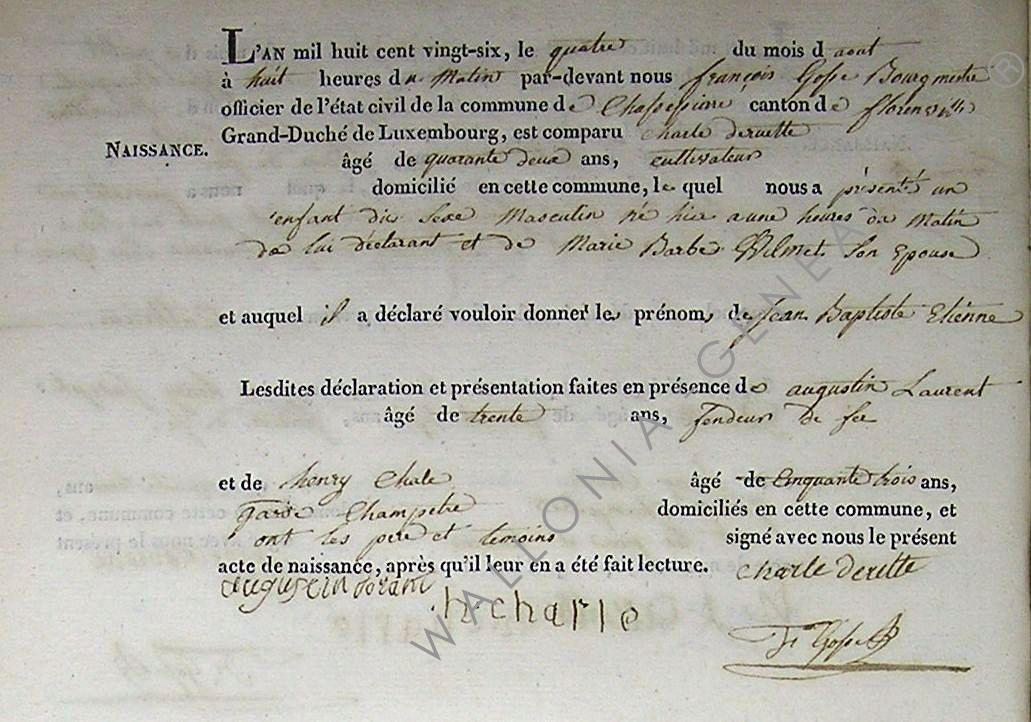 L'AN mil huit cent vingt-six, le quatre du mois d aout
à huit heures du Matin par-devant nous françois Gosse Bourgmestre
officier de l'état civil de la commune de Chassepierre canton de florenville
Grand-Duché de Luxembourg, est comparu Charle deruette
NAISSANCE.
âgé de quarante deux ans, cultivateur
domicilié en cette commune, le quel nous a présenté un
enfant du Sexe Masculin né hier a une heures du Matin
de lui déclarant et de Marie Barbe Wilmet Son Epouse
et auquel il a déclaré vouloir donner les prénoms de Jean Baptiste Etienne
Lesdites déclaration et présentation faites en présence de augustin Laurent
âgé de trente ans, fondeur de fer
et de henry Chale âgé de Cinquante trois ans,
garde Champetre domiciliés en cette commune, et
ont les pere et temoins signé avec nous le présent
acte de naissance, après qu'il leur en a été fait lecture. Charle derette
augustin
h charle
fr Gosse
WALLONIA GENEA
®